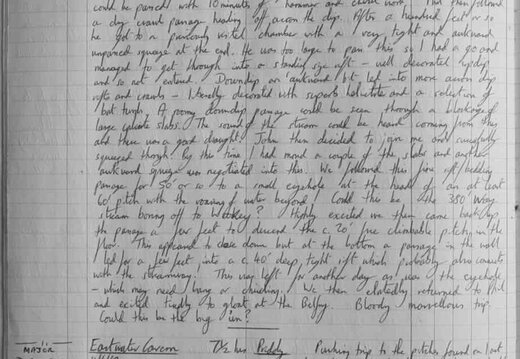 could be passed with 10 minutes of hammer and chisel work. Phil then followed
a dry crawl passage heading off across the dip. After a hundred feet or so
he got to a previously visited chamber with a very tight and awkward
unpassed squeeze at the end. He was too large to pass this so I had a go and
managed to get through into a standing size rift - well decorated updip
and so not entered. Downdip an awkward bit led into more across dip
rifts and crawls - liberally decorated with superb helictite and a selection of
bat turds. A roomy downdip passage could be seen through a blockage of
large calcite slabs. The sound of the stream could be heard coming from this
and there was a good draught. John then decided to join me and successfully
squeezed through. By this time I had moved a couple of the slabs and another
awkward squeeze was negotiated into this. We followed this fine rift/bedding
passage for 50' or so to a small eyehole at the head of an at least
60' pitch with the roaring of water beyond! Could this be the 350' Way
stream boring off to Wookey? Highly excited we then came back up
the passage a few feet to descend the c. 20' free climbable pitch in the
floor. This appeared to close down but at the bottom a passage in the wall
led for a few feet, into a c. 40' deep, tight rift which probably also connects
with the streamway. This was left for another day as was the eyehole
- which may need bang or chiseling. We then elatedly returned to Phil
and exited tiredly to gloat at the Belfry. Bloody marvellous trip.
Could this be the big 'un?
MAJOR Eastwater Cavern Pushing trip to the pitches found on last